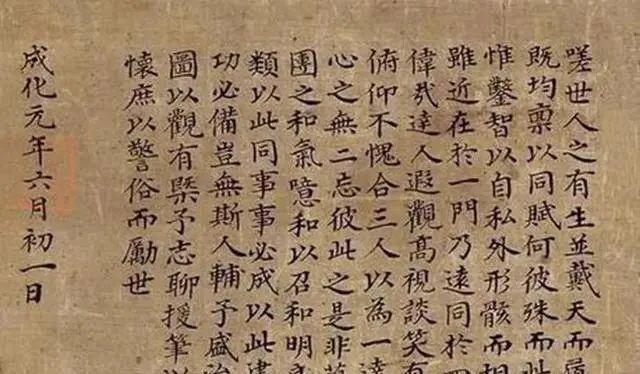 嗟世人之有生並戴天而
既均稟以同賦何彼殊而此
惟鑿智以自私外形骸而相
雖近在於一門乃遠同於
偉哉達人遐觀高視談笑有
俯仰不愧合三人以為一達
心之無二忘彼此之是非
團之和氣噫和以召和明
類以此同事事必成以此建
功必備豈無斯人輔予盛治
圖以觀有槩予志聊援筆以
懷庶以警俗而勵世
成化元年六月初一日